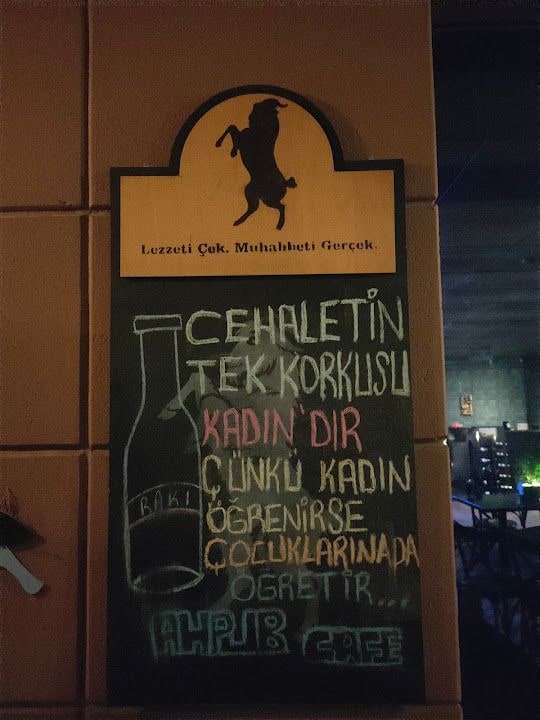 Lezzeti Çok. Muhabbeti Gerçek.
CEHALETİN
TEK KORKUSU
KADIN'DIR
ÇÜNKÜ KADIN
ÖĞRENİRSE
ÇOCUKLARINADA
ÖĞRETİR...
RAKI
AHPUB CAFE